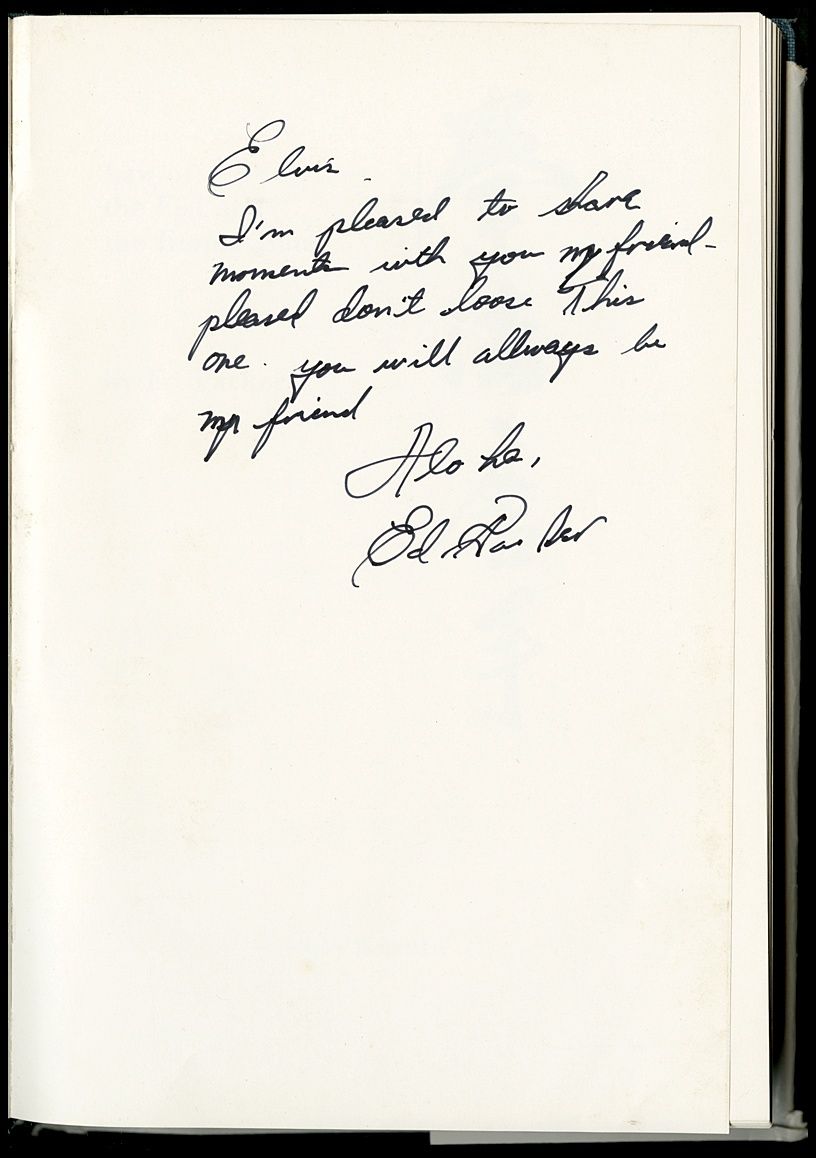 Elvis.
I'm pleased to share
moments with you my friend-
pleased don't loose This
one. you will allways be
my friend
Aloha,
Ed Parker